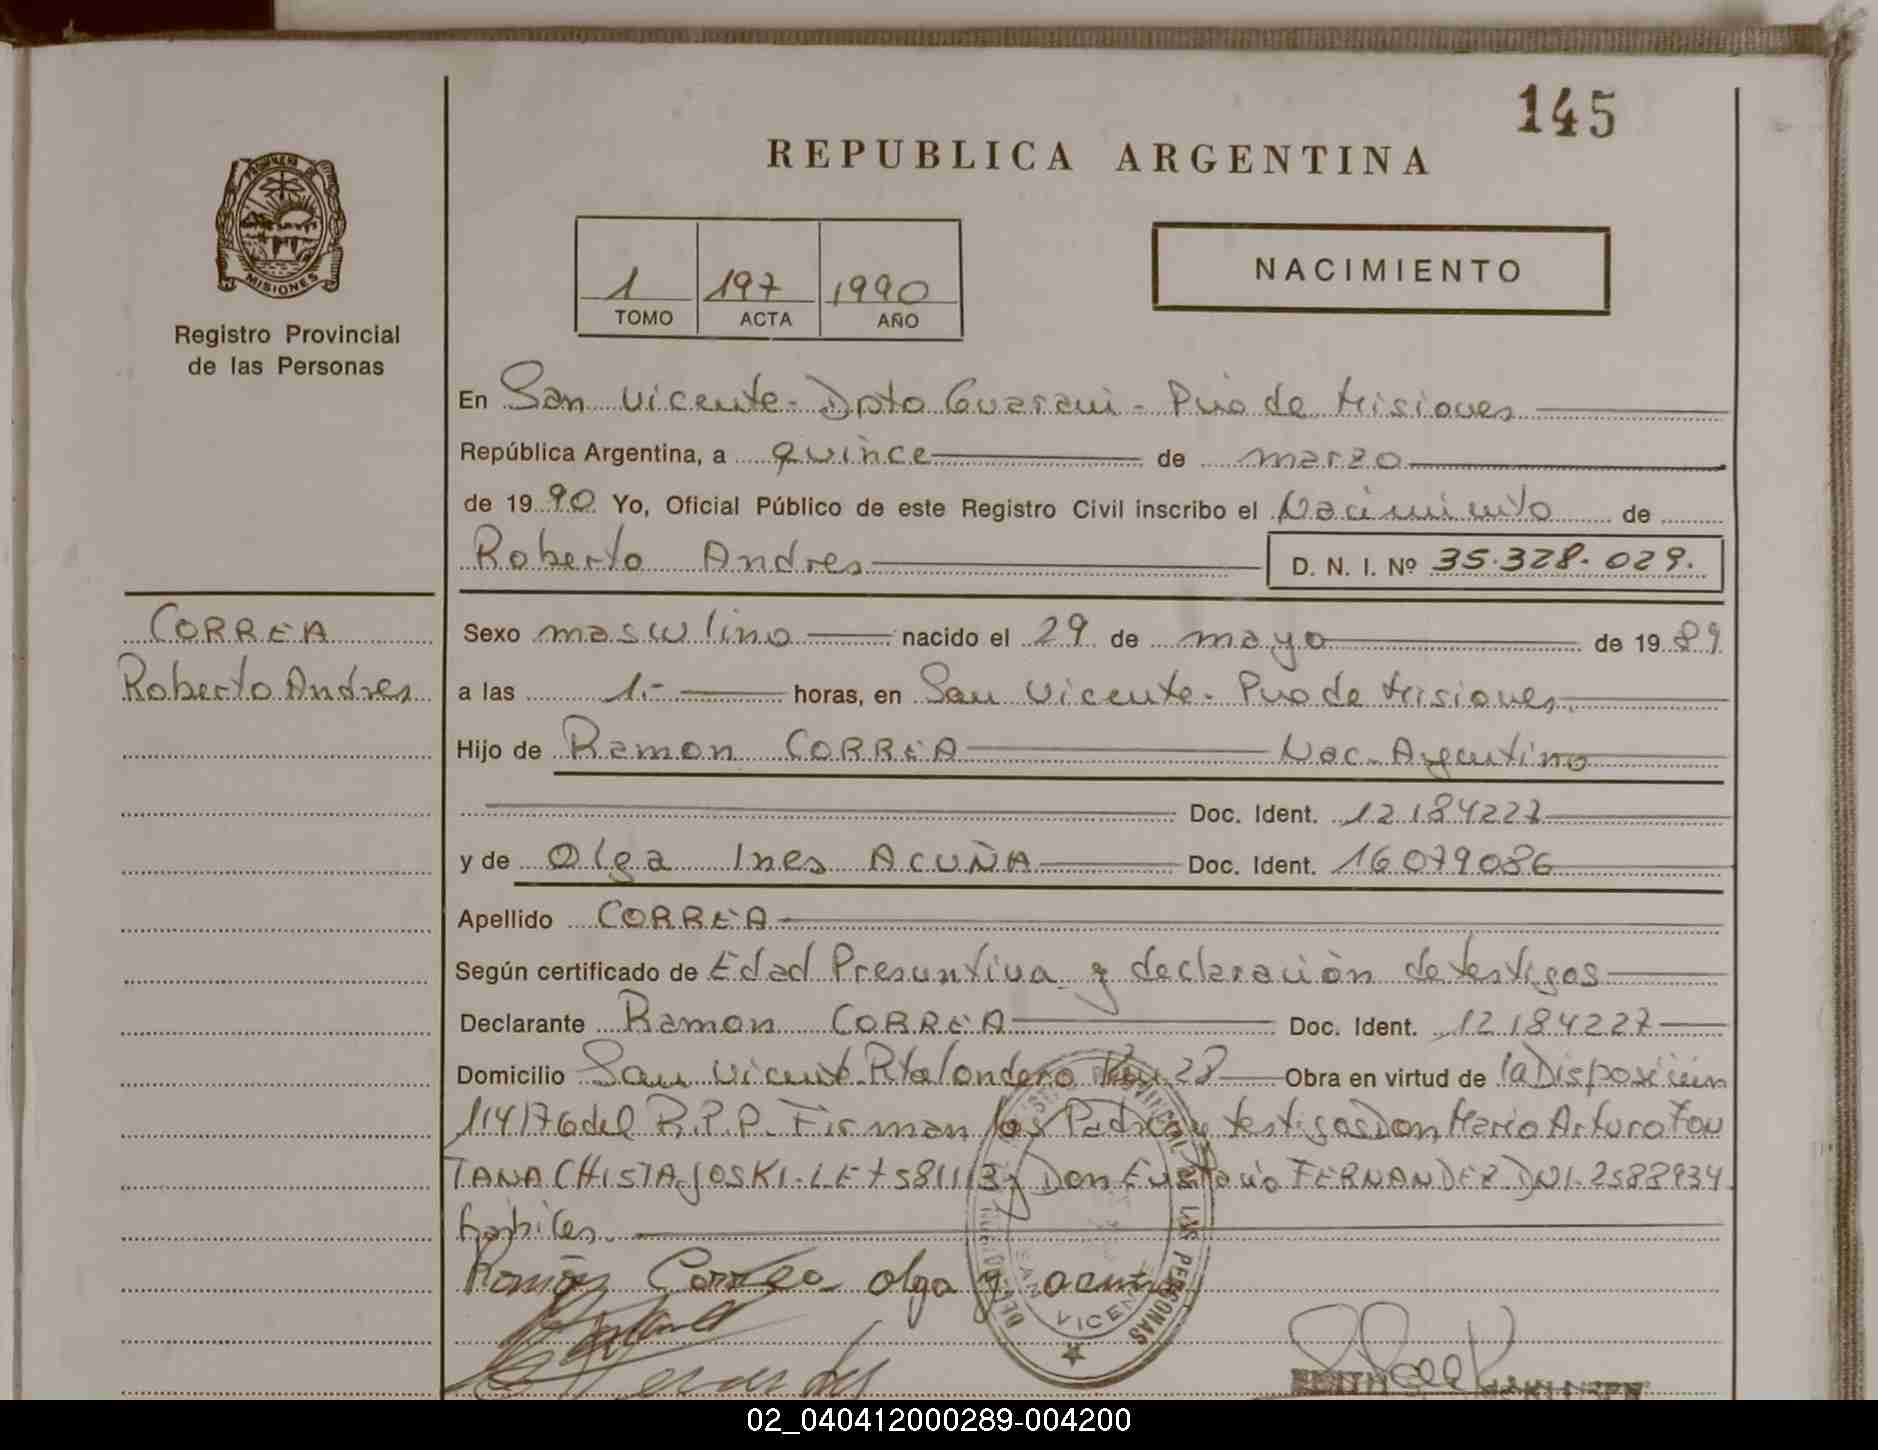 145
REPUBLICA ARGENTINA
PROVINCIA DE MISIONES
Registro Provincial
de las Personas
1 197 1990
TOMO ACTA AÑO
NACIMIENTO
En San Vicente - Dpto Guarani - Pcia de Misiones
República Argentina, a quince de marzo
de 1990 Yo, Oficial Público de este Registro Civil inscribo el Nacimiento de
Roberto Andres D. N. I. Nº 35.328.029.
CORREA
Roberto Andres
Sexo masculino nacido el 29 de mayo de 1989
a las 1.- horas, en San Vicente - Pcia de Misiones.
Hijo de Ramon CORREA Nac. Argentino
Doc. Ident. 12184227
y de Olga Ines ACUÑA Doc. Ident. 16079086
Apellido CORREA
Según certificado de Edad Presuntiva y declaración de testigos
Declarante Ramon CORREA Doc. Ident. 12184227
Domicilio San Vicente Rta Londero Km 28 Obra en virtud de la Disposición
114/76 del R.P.P. Firman los Padres y testigos Don Mario Arturo FON
TANA CHISTAJOSKI - LE 7581113 y Don Eustacio FERNANDEZ DNI. 2588934
habiles.
Ramón Correa olga y acuña
SAN VICENTE
02_040412000289-004200